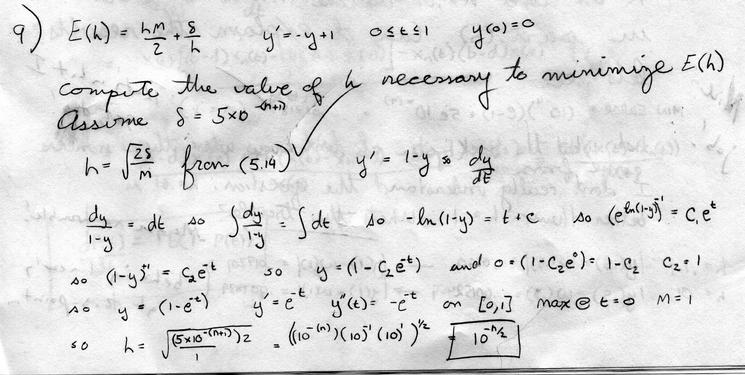 9) E(h) = hM/2 + δ/h y' = -y+1 0≤t≤1 y(0)=0
compute the value of h necessary to minimize E(h)
Assume δ = 5x10^-(n+1)
h = √(2δ/M) from (5.14) y' = 1-y so dy/dt
dy/(1-y) = dt so ∫dy/(1-y) = ∫dt so -ln(1-y) = t+c so (e^ln(1-y))^-1 = C₁e^t
so (1-y)^-1 = C₂e^-t so y = (1-C₂e^-t) and 0 = (1-C₂e^0) = 1-C₂ C₂=1
so y = (1-e^-t) y' = e^-t y''(t) = -e^-t on [0,1] max @ t=0 M=1
so h = √((5x10^-(n+1))2/1) = ((10^-(n))(10)^-1(10)^1)^1/2 = 10^-n/2